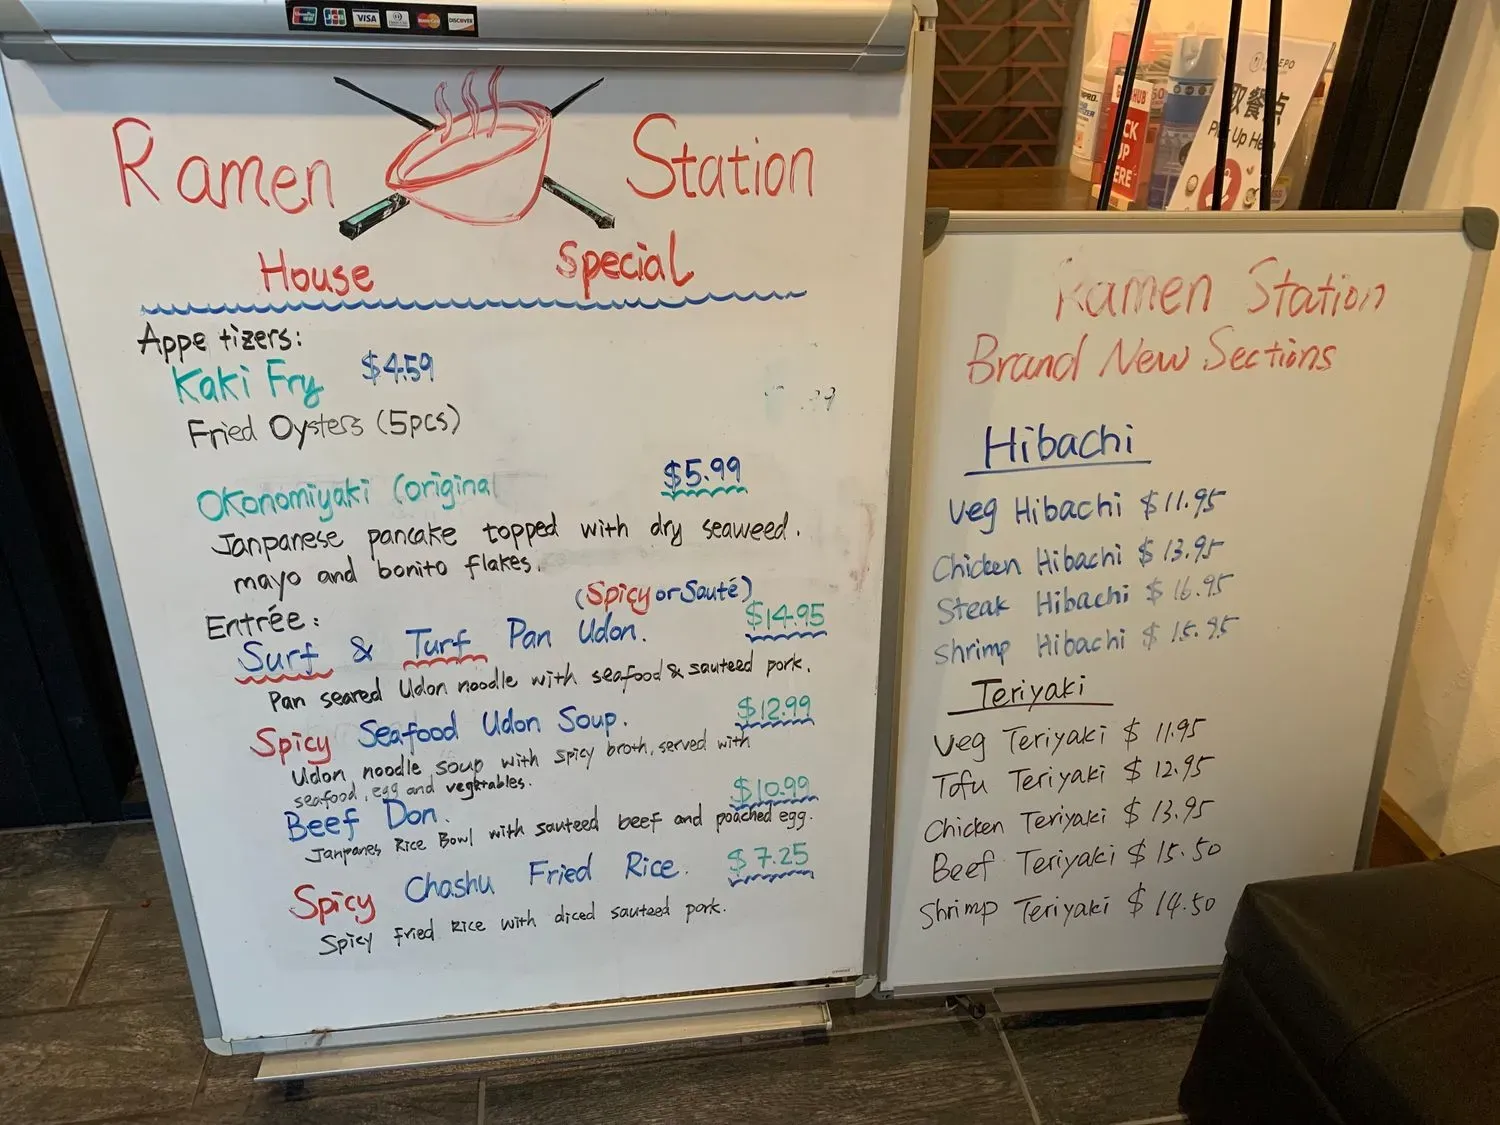 VISA
DISCOVER
Ramen Station
House Special
Appetizers:
Kaki Fry $4.59
Fried Oysters (5pcs)
Okonomiyaki (original $5.99
Janpanese pancake topped with dry seaweed.
mayo and bonito flakes.
(Spicy or Sauté)
Entrée:
Surf & Turf Pan Udon. $14.95
Pan seared Udon noodle with seafood & sauteed pork.
Spicy Seafood Udon Soup. $12.99
Udon noodle soup with spicy broth, served with
seafood, egg and vegktables.
Beef Don. $10.99
Janpanes Rice Bowl with sauteed beef and poached egg.
Spicy Chashu Fried Rice. $7.25
Spicy fried Rice with diced sauteed pork.
取餐点
Pick Up Here
Ramen Station
Brand New Sections
Hibachi
Veg Hibachi $11.95
Chicken Hibachi $13.95
Steak Hibachi $16.95
Shrimp Hibachi $15.95
Teriyaki
Veg Teriyaki $11.95
Tofu Teriyaki $12.95
Chicken Teriyaki $13.95
Beef Teriyaki $15.50
Shrimp Teriyaki $14.50